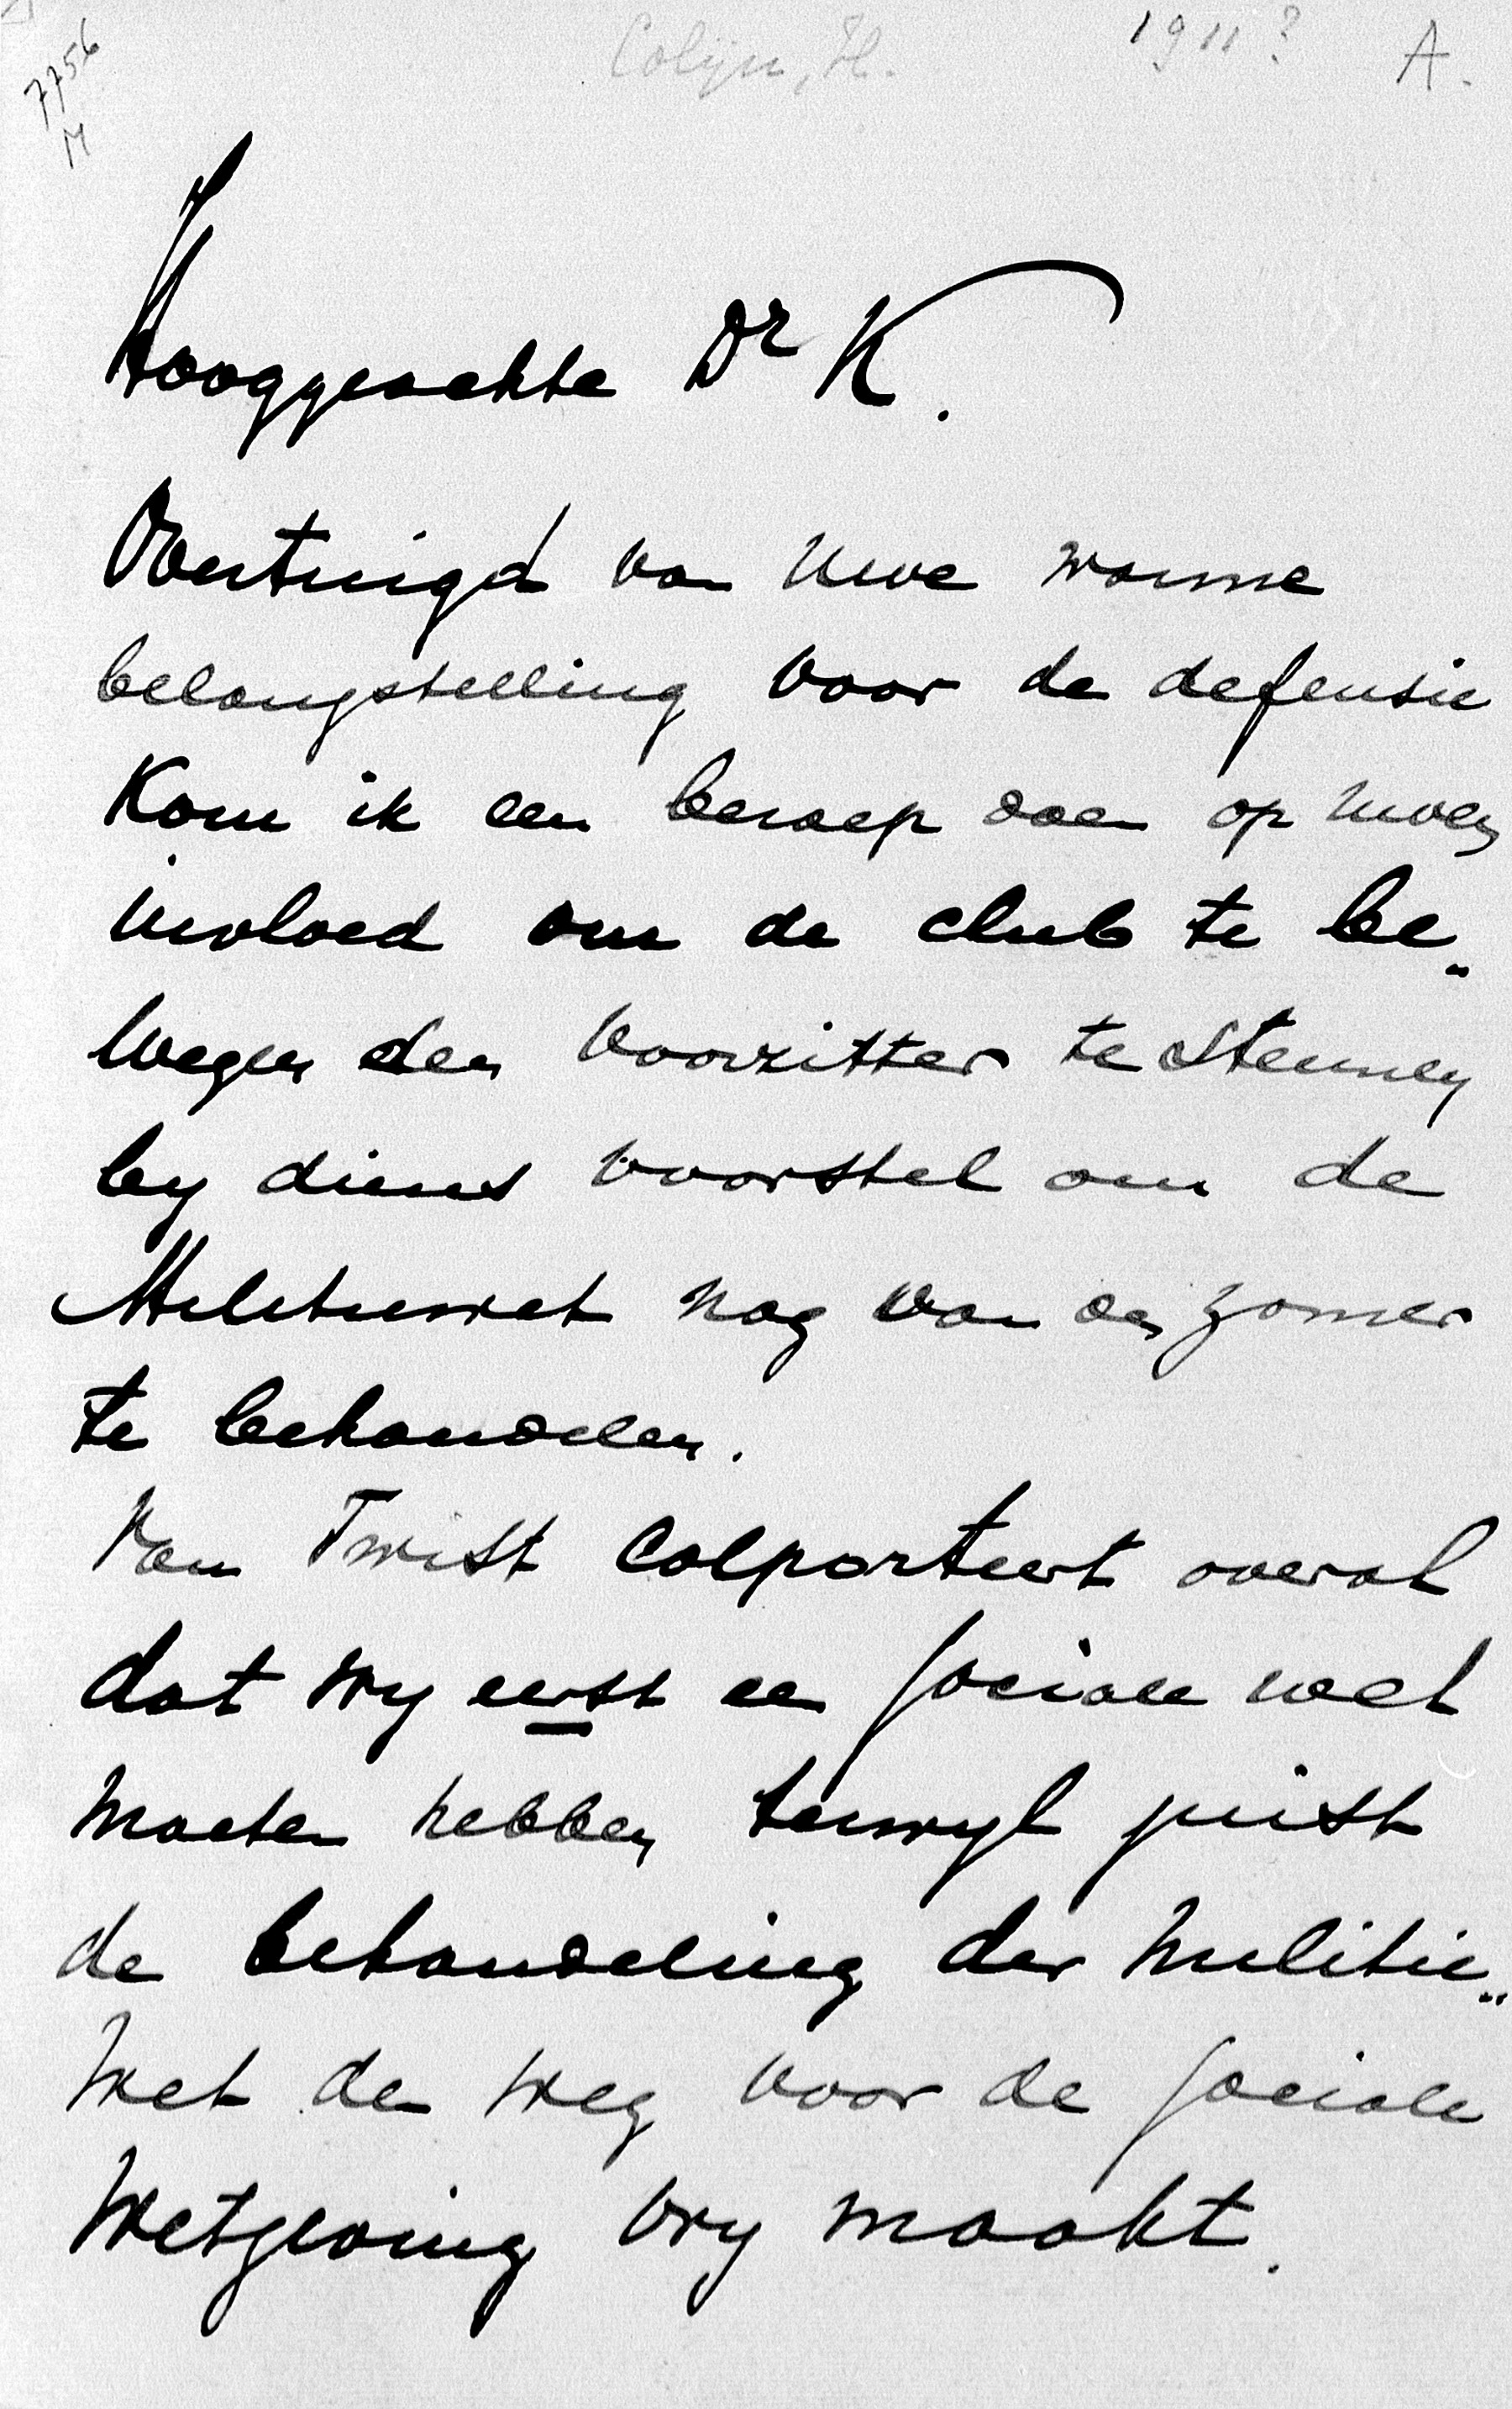 Colijn, H. 1911? A.
7756
M
Hooggeachte Dr K.
Overtuigd van Uwe warme
belangstelling voor de defensie
Kom ik een beroep doen op Uwen
invloed om de club te be„
wegen den voorzitter te steunen
by diens voorstel om de
Militiewet nog van den zomer
te behandelen.
Van Twist colporteert overal
dat wy eerst een sociale wet
moeten hebben terwyl juist
de behandeling der Militie„
wet den weg voor de sociale
wetgeving vry maakt.